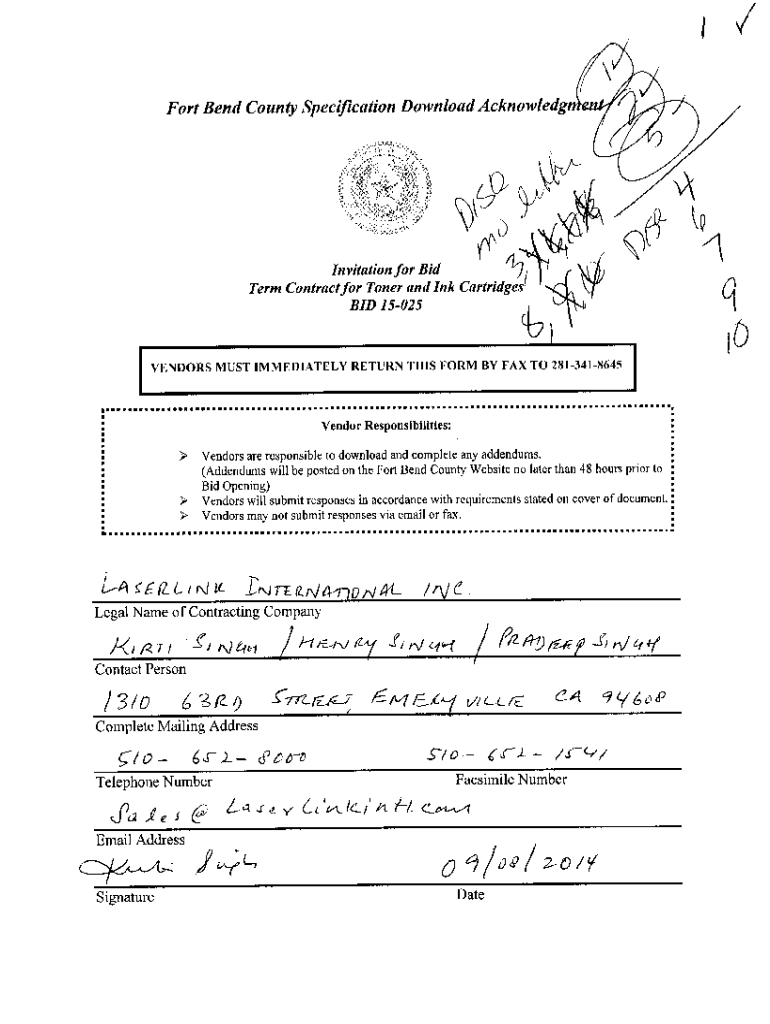 1 ✓
Fort Bend County Specification Download Acknowledgment
1 ✓
2 ✓
5
DISQ
no
3,
8,
DISQ
4
6
7
9
10
Invitation for Bid
Term Contract for Toner and Ink Cartridges
BID 15-025
VENDORS MUST IMMEDIATELY RETURN THIS FORM BY FAX TO 281-341-8645
Vendor Responsibilities:
➢ Vendors are responsible to download and complete any addendums.
(Addendums will be posted on the Fort Bend County Website no later than 48 hours prior to
Bid Opening)
➢ Vendors will submit responses in accordance with requirements stated on cover of document.
➢ Vendors may not submit responses via email or fax.
LASERLINK INTERNATIONAL INC.
Legal Name of Contracting Company
KIRTI SINGH / HENRY SINGH / PRADEEP SINGH
Contact Person
1310 63RD STREET, EMERYVILLE CA 94608
Complete Mailing Address
510-652-8000 510-652-1541
Telephone Number Facsimile Number
Sales@Laserlinkintl.com
Email Address
Kirti Singh 09/08/2014
Signature Date